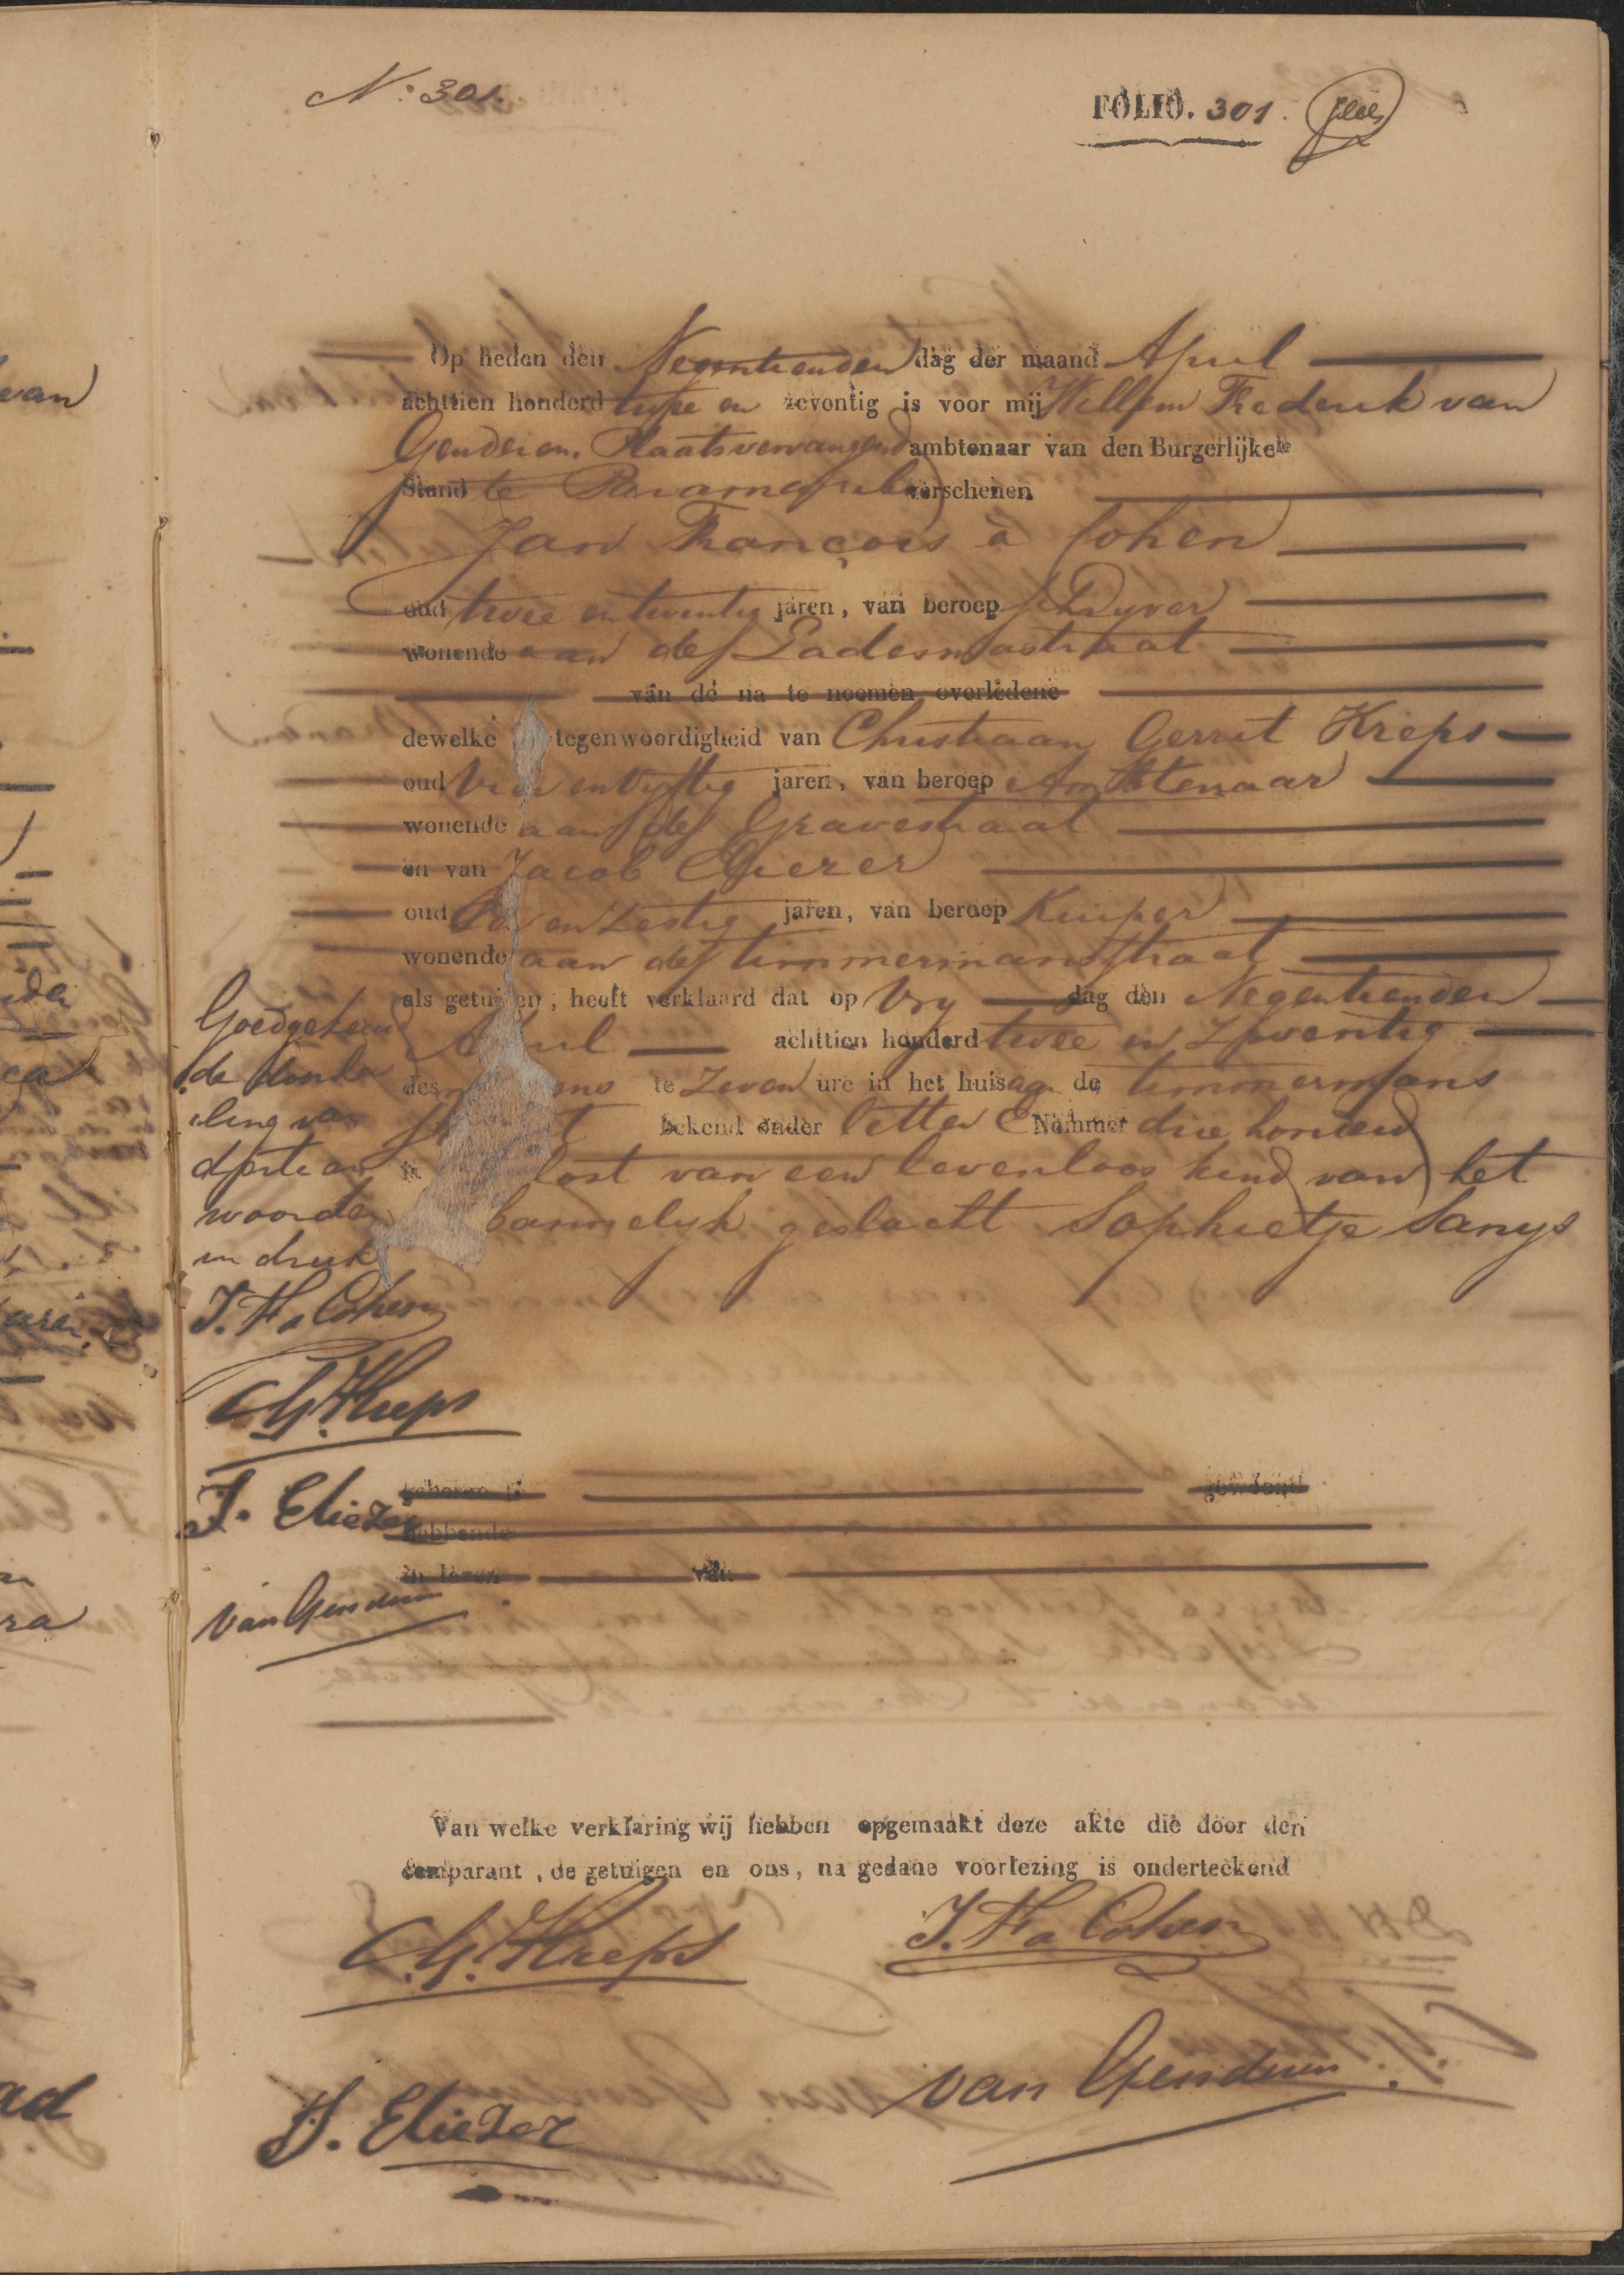 N.o 301.
FOLIO. 301.
Op heden den Negentienden dag der maand April
achttien honderd twee en zeventig is voor mij Willem Frederik van
Genderen, Plaatsvervangend ambtenaar van den Burgerlijken
Stand te Paramaribo verschenen
Jan François à Cohen
oud twee en twintig jaren, van beroep schryver
wonende aan de Ladesmastraat
van de na te noemen overledene
dewelke tegenwoordigheid van Christiaan Gerrit Kreps
oud vyftig jaren, van beroep Ambtenaar
wonende aan de Gravestraat
en van Jacob Eliezer
oud en Zestig jaren, van beroep Kuiper
wonende aan de timmermanstraat
als getuigen, heeft verklaard dat op Vry dag den Negentienden
April achttien honderd twee en Zeventig
des te Zeven ure in het huis aan de timmermans
bekend onder letter E Nummer drie honderd
lost van een levenloos kind van het
geslacht Sophietje Sanys
Goedgekeurd
de doorha
ling van
dertien
woorden
in druk
J. F. a Cohen
C. G. Kreps
J. Eliezer
van Genderen
geboren te gewoond
hebbende
in leven van
Van welke verklaring wij hebben opgemaakt deze akte die door den
comparant, de getuigen en ons, na gedane voorlezing is onderteekend
C. G. Kreps J. F. a Cohen
J. Eliezer van Genderen